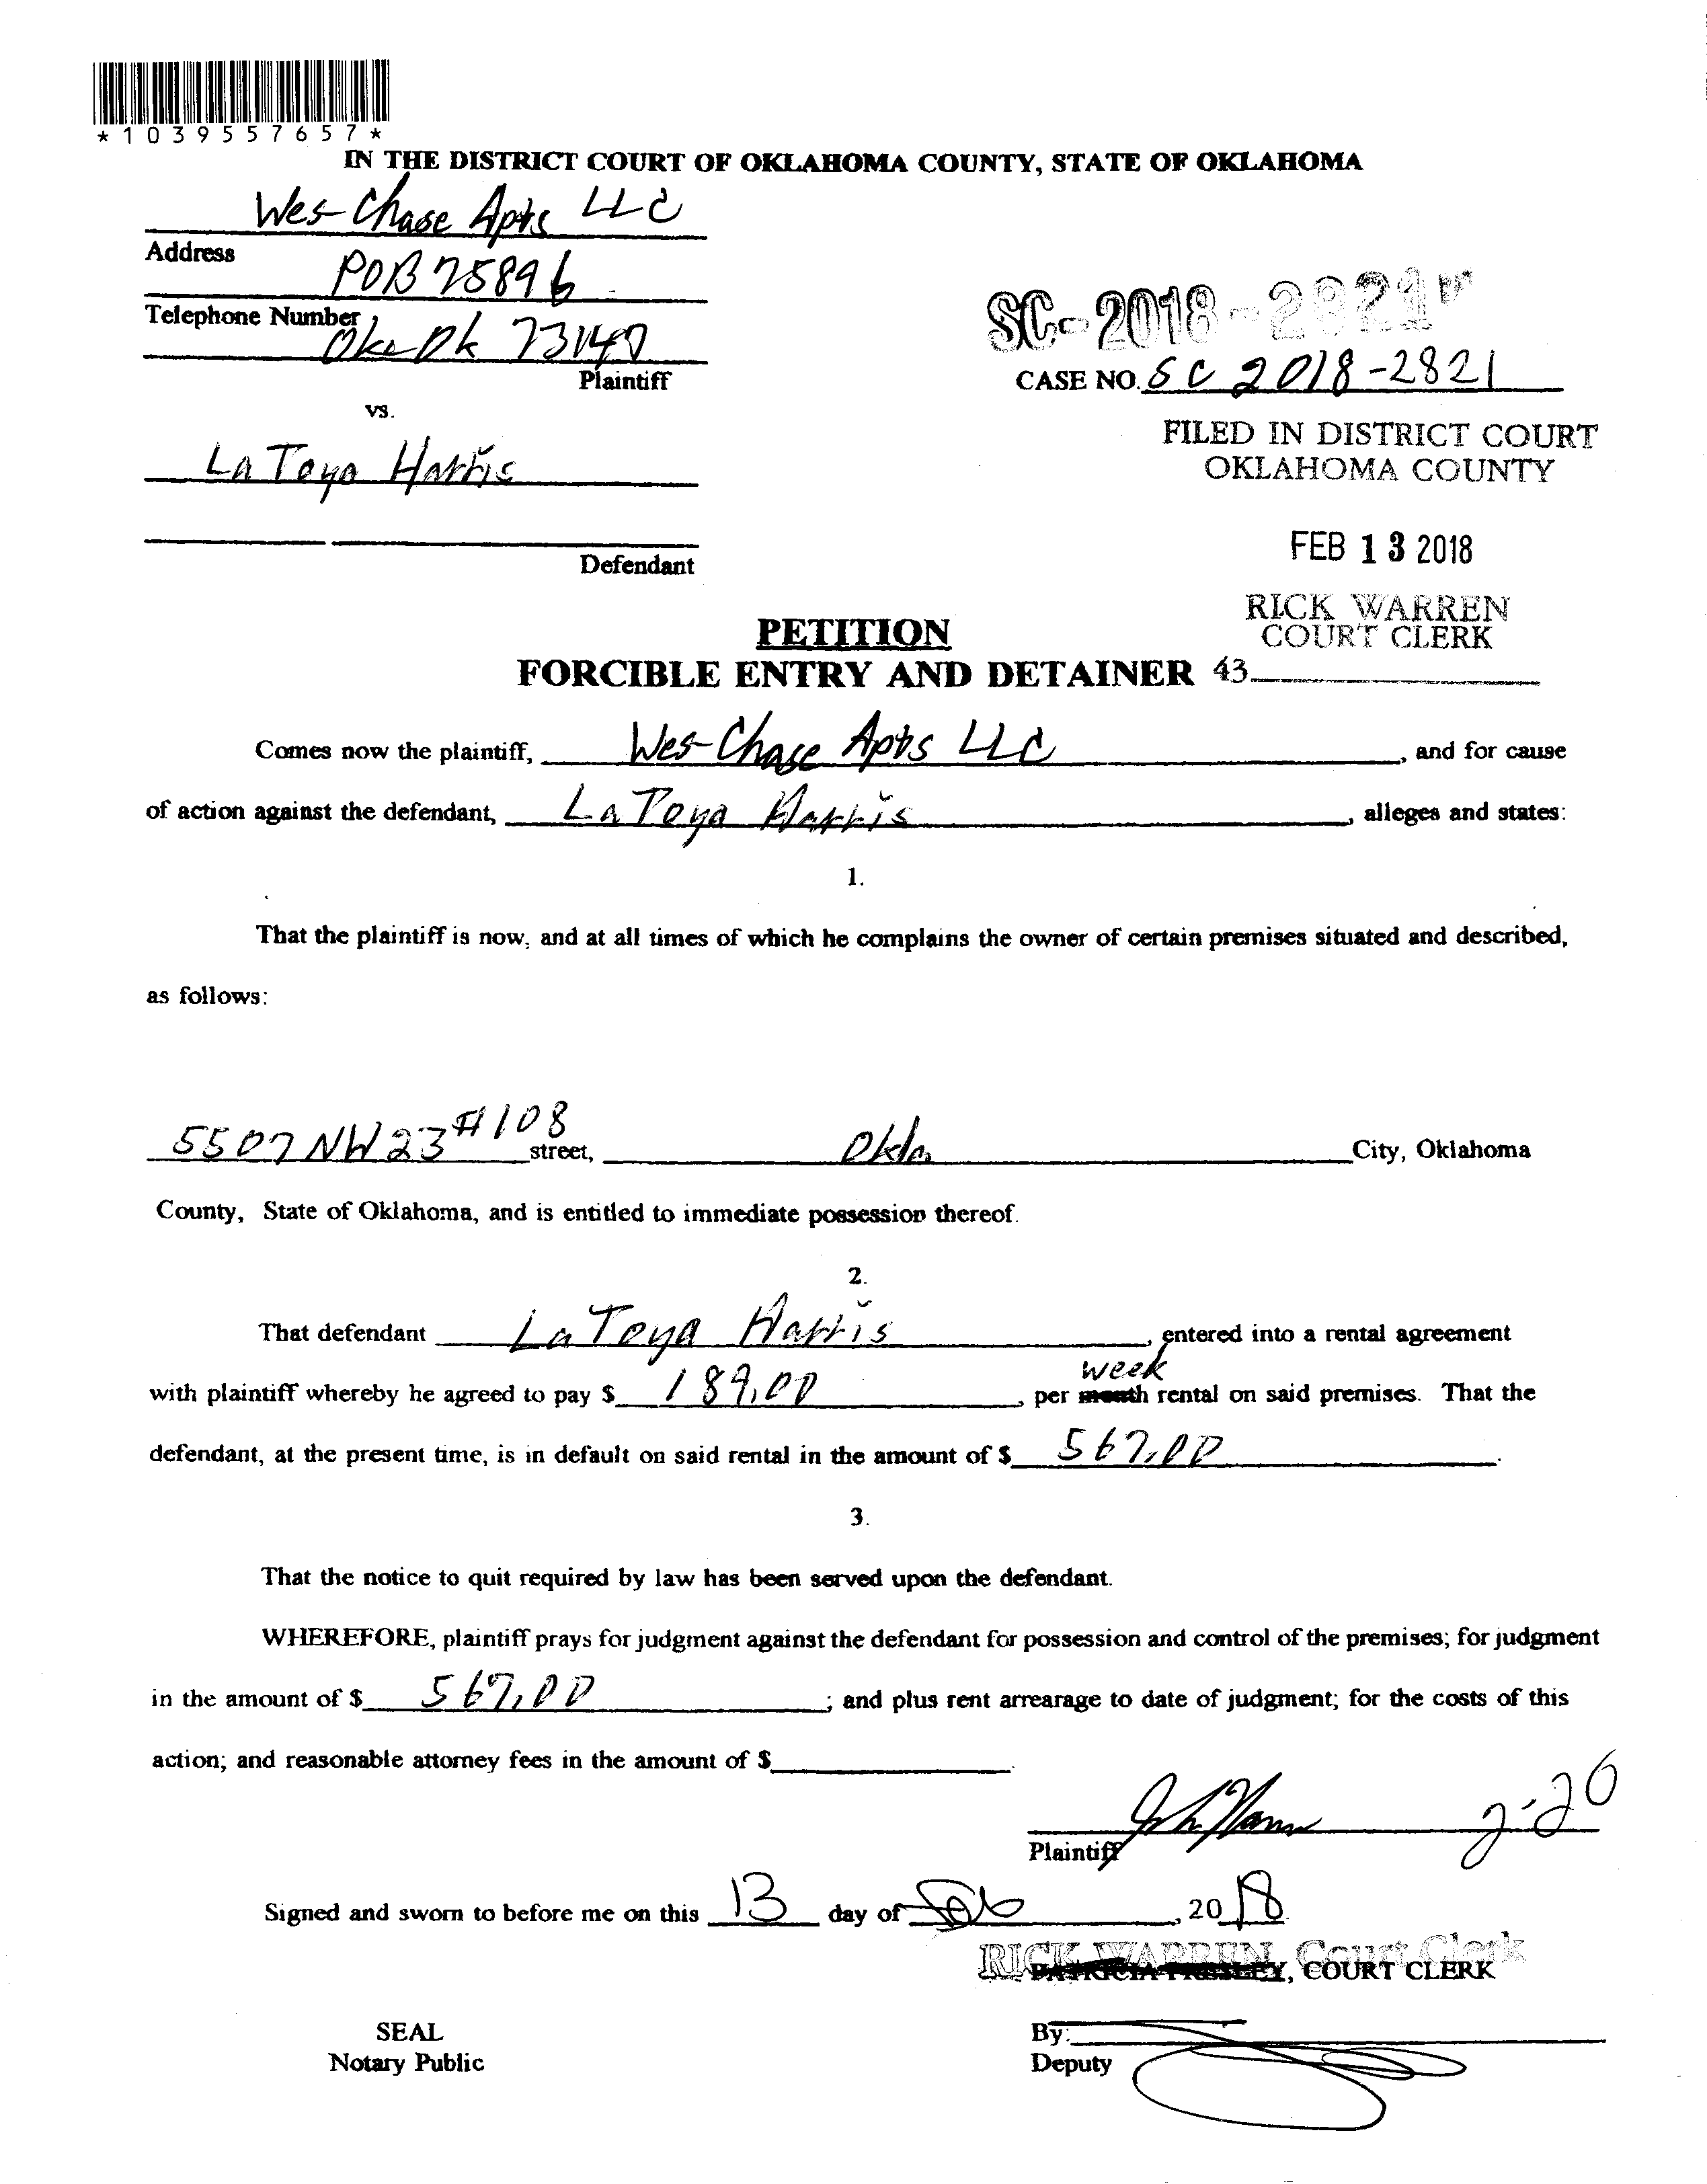 *1039557657*
IN THE DISTRICT COURT OF OKLAHOMA COUNTY, STATE OF OKLAHOMA
Wes-Chase Apts LLC
Address
POB 75896
Telephone Number
Okc Ok 73147
Plaintiff
SC-2018-2821
CASE NO. SC 2018-2821
vs.
La Toya Harris
FILED IN DISTRICT COURT
OKLAHOMA COUNTY
FEB 13 2018
Defendant
RICK WARREN
COURT CLERK
PETITION
FORCIBLE ENTRY AND DETAINER 43
Comes now the plaintiff, Wes-Chase Apts LLC, and for cause
of action against the defendant, La Toya Harris, alleges and states:
1.
That the plaintiff is now, and at all times of which he complains the owner of certain premises situated and described,
as follows:
5507 NW 23 #108 street, Okla City, Oklahoma
County, State of Oklahoma, and is entitled to immediate possession thereof.
2.
That defendant La Toya Harris, entered into a rental agreement
week
with plaintiff whereby he agreed to pay $ 189.00, per month rental on said premises. That the
defendant, at the present time, is in default on said rental in the amount of $ 567.00.
3.
That the notice to quit required by law has been served upon the defendant.
WHEREFORE, plaintiff prays for judgment against the defendant for possession and control of the premises; for judgment
in the amount of $ 567.00; and plus rent arrearage to date of judgment; for the costs of this
action; and reasonable attorney fees in the amount of $
2-26
Plaintiff
Signed and sworn to before me on this 13 day of Feb, 2018
RICK WARREN, Court Clerk
PATRICIA PRESLEY, COURT CLERK
SEAL
Notary Public
By:
Deputy